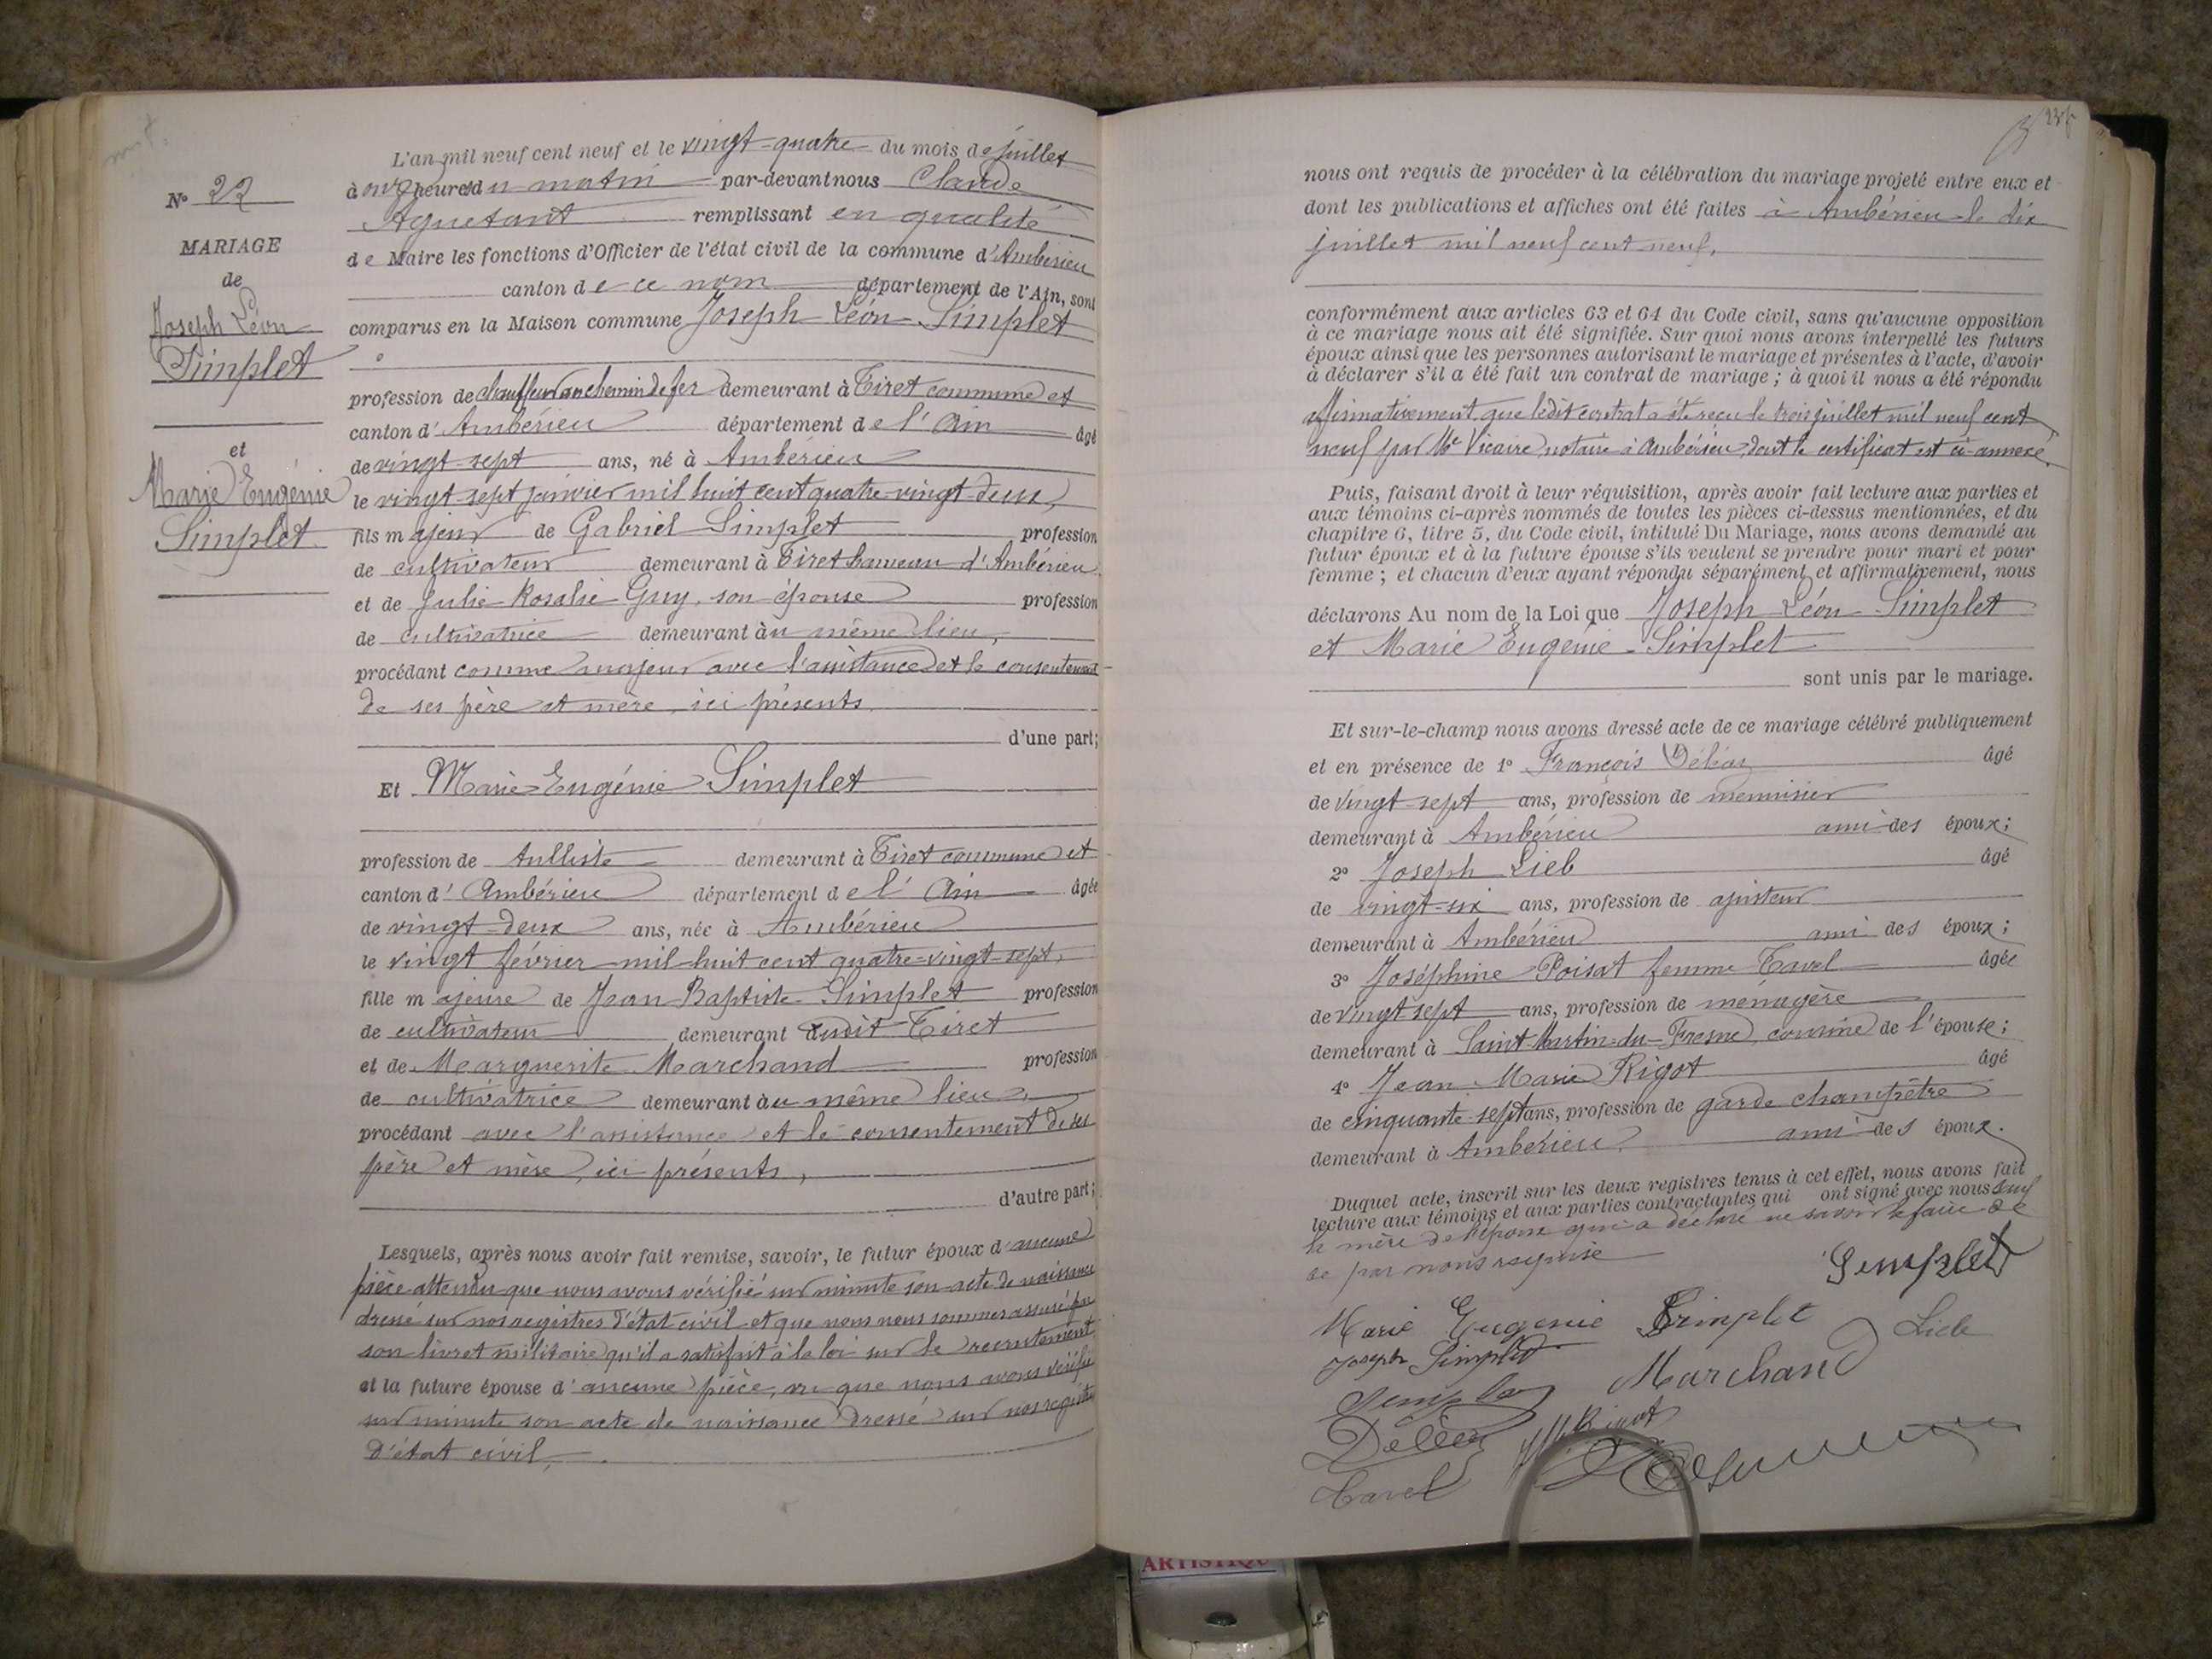 N° 22
MARIAGE
de
Joseph Léon
Simplet
et
Marie Eugénie
Simplet
L'an mil neuf cent neuf et le vingt-quatre du mois de juillet
à onze heures du matin par-devant nous Claude
Aguetant remplissant en qualité
de Maire les fonctions d'Officier de l'état civil de la commune d'Ambérieu
canton de ce nom département de l'Ain, sont
comparus en la Maison commune Joseph Léon Simplet
profession de chauffeur au chemin de fer demeurant à Tiret commune et
canton d'Ambérieu département de l'Ain âgé
de vingt-sept ans, né à Ambérieu
le vingt-sept janvier mil huit cent quatre-vingt-deux,
fils majeur de Gabriel Simplet profession
de cultivateur demeurant à Tiret hameau d'Ambérieu
et de Julie Rosalie Guy, son épouse profession
de cultivatrice demeurant au même lieu,
procédant comme majeur avec l'assistance et le consentement
de ses père et mère, ici présents
d'une part;
Et Marie Eugénie Simplet
profession de tulliste demeurant à Tiret commune et
canton d'Ambérieu département de l'Ain âgée
de vingt-deux ans, née à Ambérieu
le vingt février mil huit cent quatre-vingt-sept,
fille majeure de Jean Baptiste Simplet profession
de cultivateur demeurant audit Tiret
et de Marguerite Marchand profession
de cultivatrice demeurant au même lieu,
procédant avec l'assistance et le consentement de ses
père et mère, ici présents,
d'autre part;
Lesquels, après nous avoir fait remise, savoir, le futur époux d'aucune
pièce attendu que nous avons vérifié sur minute son acte de naissance
dressé sur nos registres d'état civil et que nous nous sommes assuré par
son livret militaire qu'il a satisfait à la loi sur le recrutement
et la future épouse d'aucune pièce, vu que nous avons vérifié
sur minute son acte de naissance dressé sur nos registres
d'état civil.
nous ont requis de procéder à la célébration du mariage projeté entre eux et
dont les publications et affiches ont été faites à Ambérieu le dix
juillet mil neuf cent neuf,
conformément aux articles 63 et 64 du Code civil, sans qu'aucune opposition
à ce mariage nous ait été signifiée. Sur quoi nous avons interpellé les futurs
époux ainsi que les personnes autorisant le mariage et présentes à l'acte, d'avoir
à déclarer s'il a été fait un contrat de mariage; à quoi il nous a été répondu
affirmativement que ledit contrat a été reçu le trois juillet mil neuf cent
neuf par Me Vicaire, notaire à Ambérieu dont le certificat est ci-annexé.
Puis, faisant droit à leur réquisition, après avoir fait lecture aux parties et
aux témoins ci-après nommés de toutes les pièces ci-dessus mentionnées, et du
chapitre 6, titre 5, du Code civil, intitulé Du Mariage, nous avons demandé au
futur époux et à la future épouse s'ils veulent se prendre pour mari et pour
femme; et chacun d'eux ayant répondu séparément et affirmativement, nous
déclarons Au nom de la Loi que Joseph Léon Simplet
et Marie Eugénie Simplet
sont unis par le mariage.
Et sur-le-champ nous avons dressé acte de ce mariage célébré publiquement
et en présence de 1° François âgé
de vingt-sept ans, profession de menuisier
demeurant à Ambérieu ami des époux;
2° Joseph Lieb âgé
de vingt-six ans, profession de ajusteur
demeurant à Ambérieu ami des époux;
3° Joséphine Poisat femme Tavel âgée
de vingt sept ans, profession de ménagère
demeurant à Saint-Martin-du-Fresne, cousine de l'épouse;
4° Jean Marie Rigot âgé
de cinquante-sept ans, profession de garde champêtre
demeurant à Ambérieu ami des époux.
Duquel acte, inscrit sur les deux registres tenus à cet effet, nous avons fait
lecture aux témoins et aux parties contractantes qui ont signé avec nous sauf
la mère de l'époux qui a déclaré ne savoir le faire de
ce par nous requise
Simplet
Marie Eugenie Simplet Lieb
Joseph Simplet Marchand
Simplet
Rigot
Tavel
ARTISTIQU